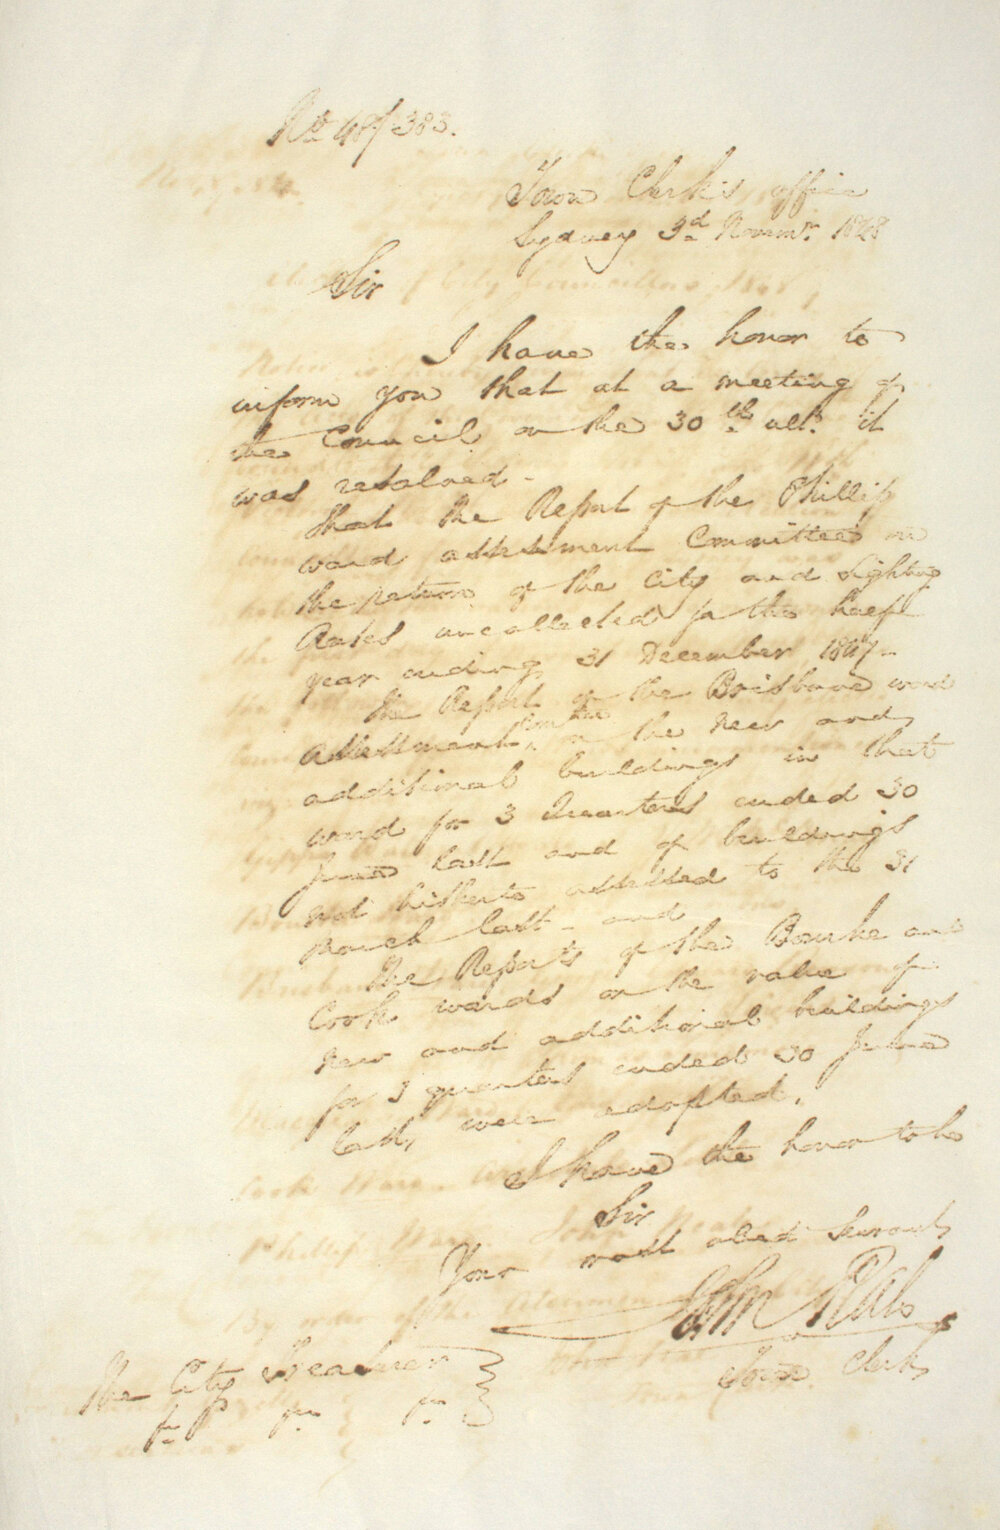 No 48/383.
Town Clerk's office
Sydney 3d Novemr. 1848
Sir
I have the honor to
inform you that at a meeting of
the Council on the 30th ulto. it
was resolved -
That the Report of the Phillip
ward assessment Committee on
the return of the City and Lighting
Rates uncollected for the half
year ending 31 December 1847 -
The Report of the Brisbane ward
assessment Comtee on the new and
additional buildings in that
ward for 3 Quarters ended 30
June last and of buildings
not hitherto assessed to the 31
March last - and
The Reports of the Bourke and
Cook wards on the value of
new and additional buildings
for 3 quarters ended 30 June
last, were adopted.
I have the honor to be
Sir
Your most obed Servant,
John Rae
Town Clerk
The City Treasurer